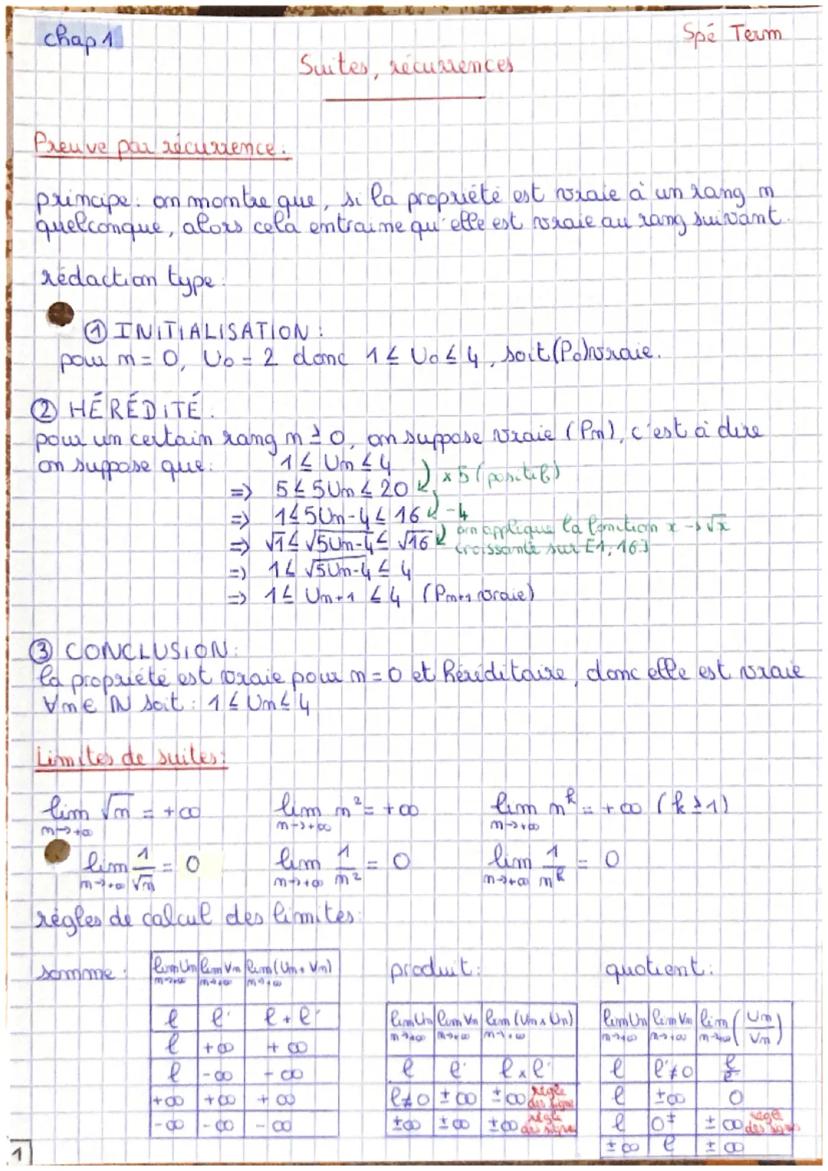 chap 1
Spé Term
Suites, récurrences
Preuve par récurrence.
principe: on montre que, si la propriété est vraie à un rang n
quelconque, alors cela entraine qu'elle est vraie au rang suivant.
rédaction type:
① INITIALISATION:
pour n = 0, U₀ = 2 donc 1 ≤ U₀ ≤ 4, soit (P₀) vraie.
② HÉRÉDITÉ.
pour un certain rang n ≥ 0, on suppose vraie (Pn), c'est à dire
on suppose que: 1 ≤ Un ≤ 4
x 5 (positif)
=> 5 ≤ 5Un ≤ 20
-4
=> 1 ≤ 5Un-4 ≤ 16
on applique la fonction x → √x
=> √1 ≤ √5Un-4 ≤ √16
croissante sur [1; 16]
=> 1 ≤ √5Un-4 ≤ 4
=> 1 ≤ Un+1 ≤ 4 (Pn+1 vraie)
③ CONCLUSION:
la propriété est vraie pour n = 0 et héréditaire, donc elle est vraie
∀n ∈ ℕ soit: 1 ≤ Un ≤ 4
Limites de suites:
lim n→+∞ √n = +∞ lim n→+∞ n² = +∞ lim n→+∞ nᵏ = +∞ (k ≥ 1)
lim n→+∞ 1/√n = 0 lim n→+∞ 1/n² = 0 lim n→+∞ 1/nᵏ = 0
règles de calcul des limites:
somme:
lim Un n→+∞ lim Vn n→+∞ lim (Un + Vn) n→+∞
l l' l + l'
l +∞ +∞
l -∞ -∞
+∞ +∞ +∞
-∞ -∞ -∞
produit:
lim Un n→+∞ lim Vn n→+∞ lim (Un x Un) n→+∞
l l' l x l'
l≠0 ±∞ ±∞ règle des signes
±∞ ±∞ ±∞ règle des signes
quotient:
lim Un n→+∞ lim Vn n→+∞ lim n→+∞ (Un/Vn)
l l'≠0 l/l'
l ±∞ 0
l 0± ±∞ règle des signes
±∞ l ±∞
1